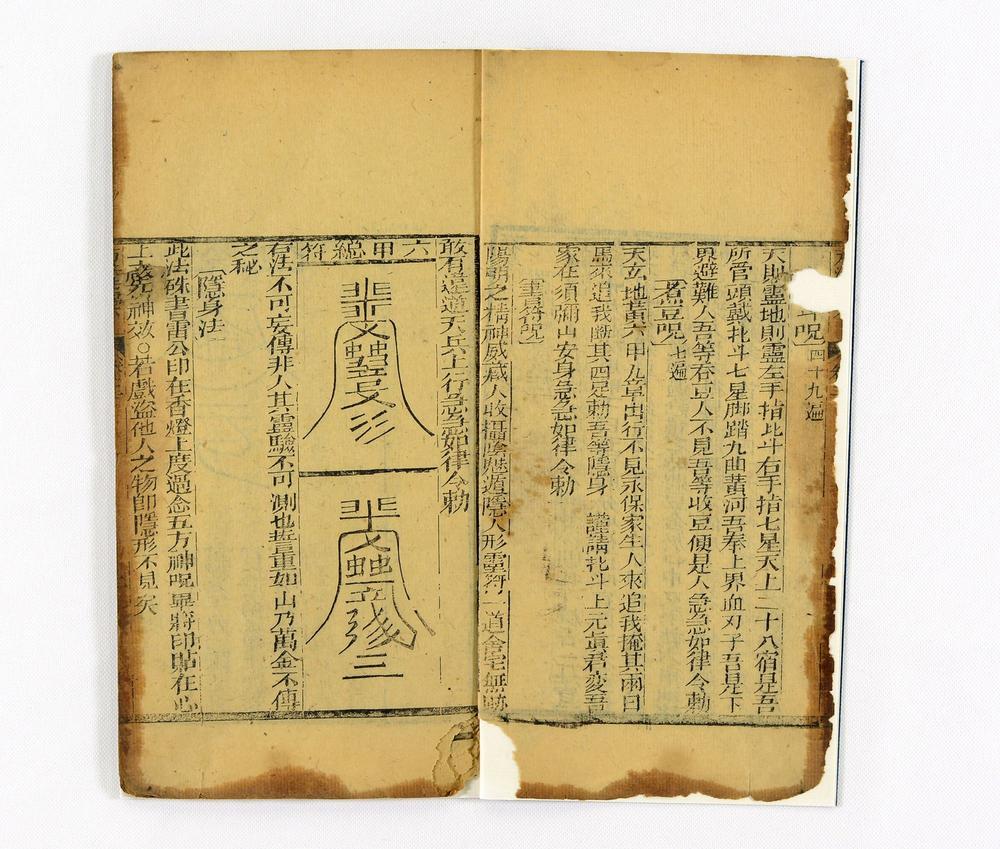 斗呪 四十九遍
天則靈地則靈左手指北斗右手指七星天上二十八宿是吾
所管頭戴北斗七星脚踏九曲黃河吾奉上界血刃子吾是下
界避難人吾等吞豆人不見吾等收豆便是人急急如律令勅
煮豆呪 七遍
天玄地黃六甲九章出行不見永保家生人來追我掩其兩目
馬來追我斷其四足勅吾等隱身 謹請北斗上元眞君变吾
家在須彌山安身急急如律令勅
書符呪
陽朝之精神威藏人收攝陰魅遁隱人形靈符一道舍宅無跡
敢有逆道天兵上行急急如律令勅
六甲總符
右法不可妄傳非人其靈驗不可測也誓重如山乃萬金不傳
之秘
隱身法
此法硃書雷公印在香燈上度過念五方神呪畢將印貼在心
上 神效○若戲盜他人之物卽隱形不見矣